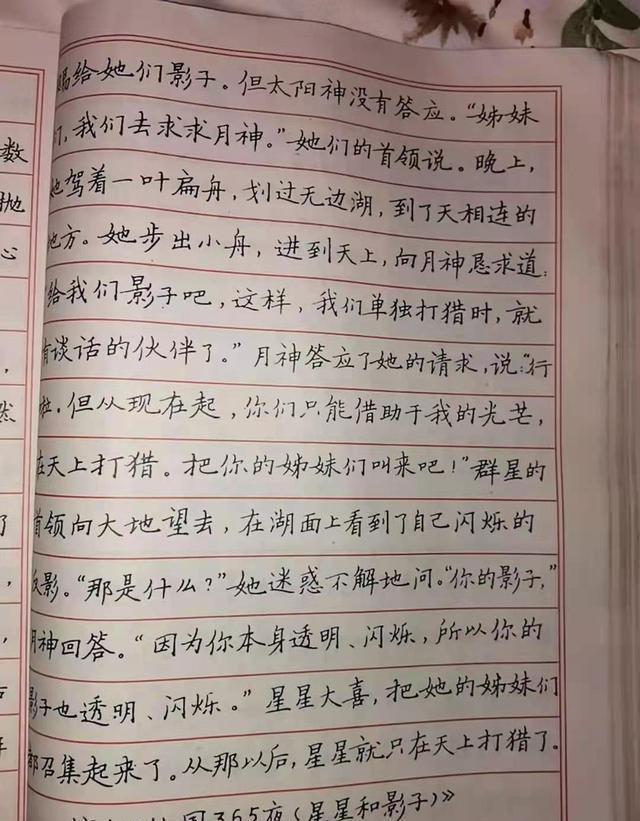 赐给她们影子。但太阳神没有答应。“姊妹
们,我们去求求月神。”她们的首领说。晚上,
她驾着一叶扁舟,划过无边湖,到了天相连的
地方。她步出小舟,进到天上,向月神恳求道:
“给我们影子吧,这样,我们单独打猎时,就
有谈话的伙伴了。”月神答应了她的请求,说:“行
啦,但从现在起,你们只能借助于我的光芒,
在天上打猎。把你的姊妹们叫来吧!”群星的
首领向大地望去,在湖面上看到了自己闪烁的
反影。“那是什么?”她迷惑不解地问。“你的影子,”
月神回答。“因为你本身透明、闪烁,所以你的
影子也透明、闪烁。”星星大喜,把她的姊妹们
都召集起来了。从那以后,星星就只在天上打猎了。
国365夜(星星和影子)》
数
抛
心
,
然
了
,
,